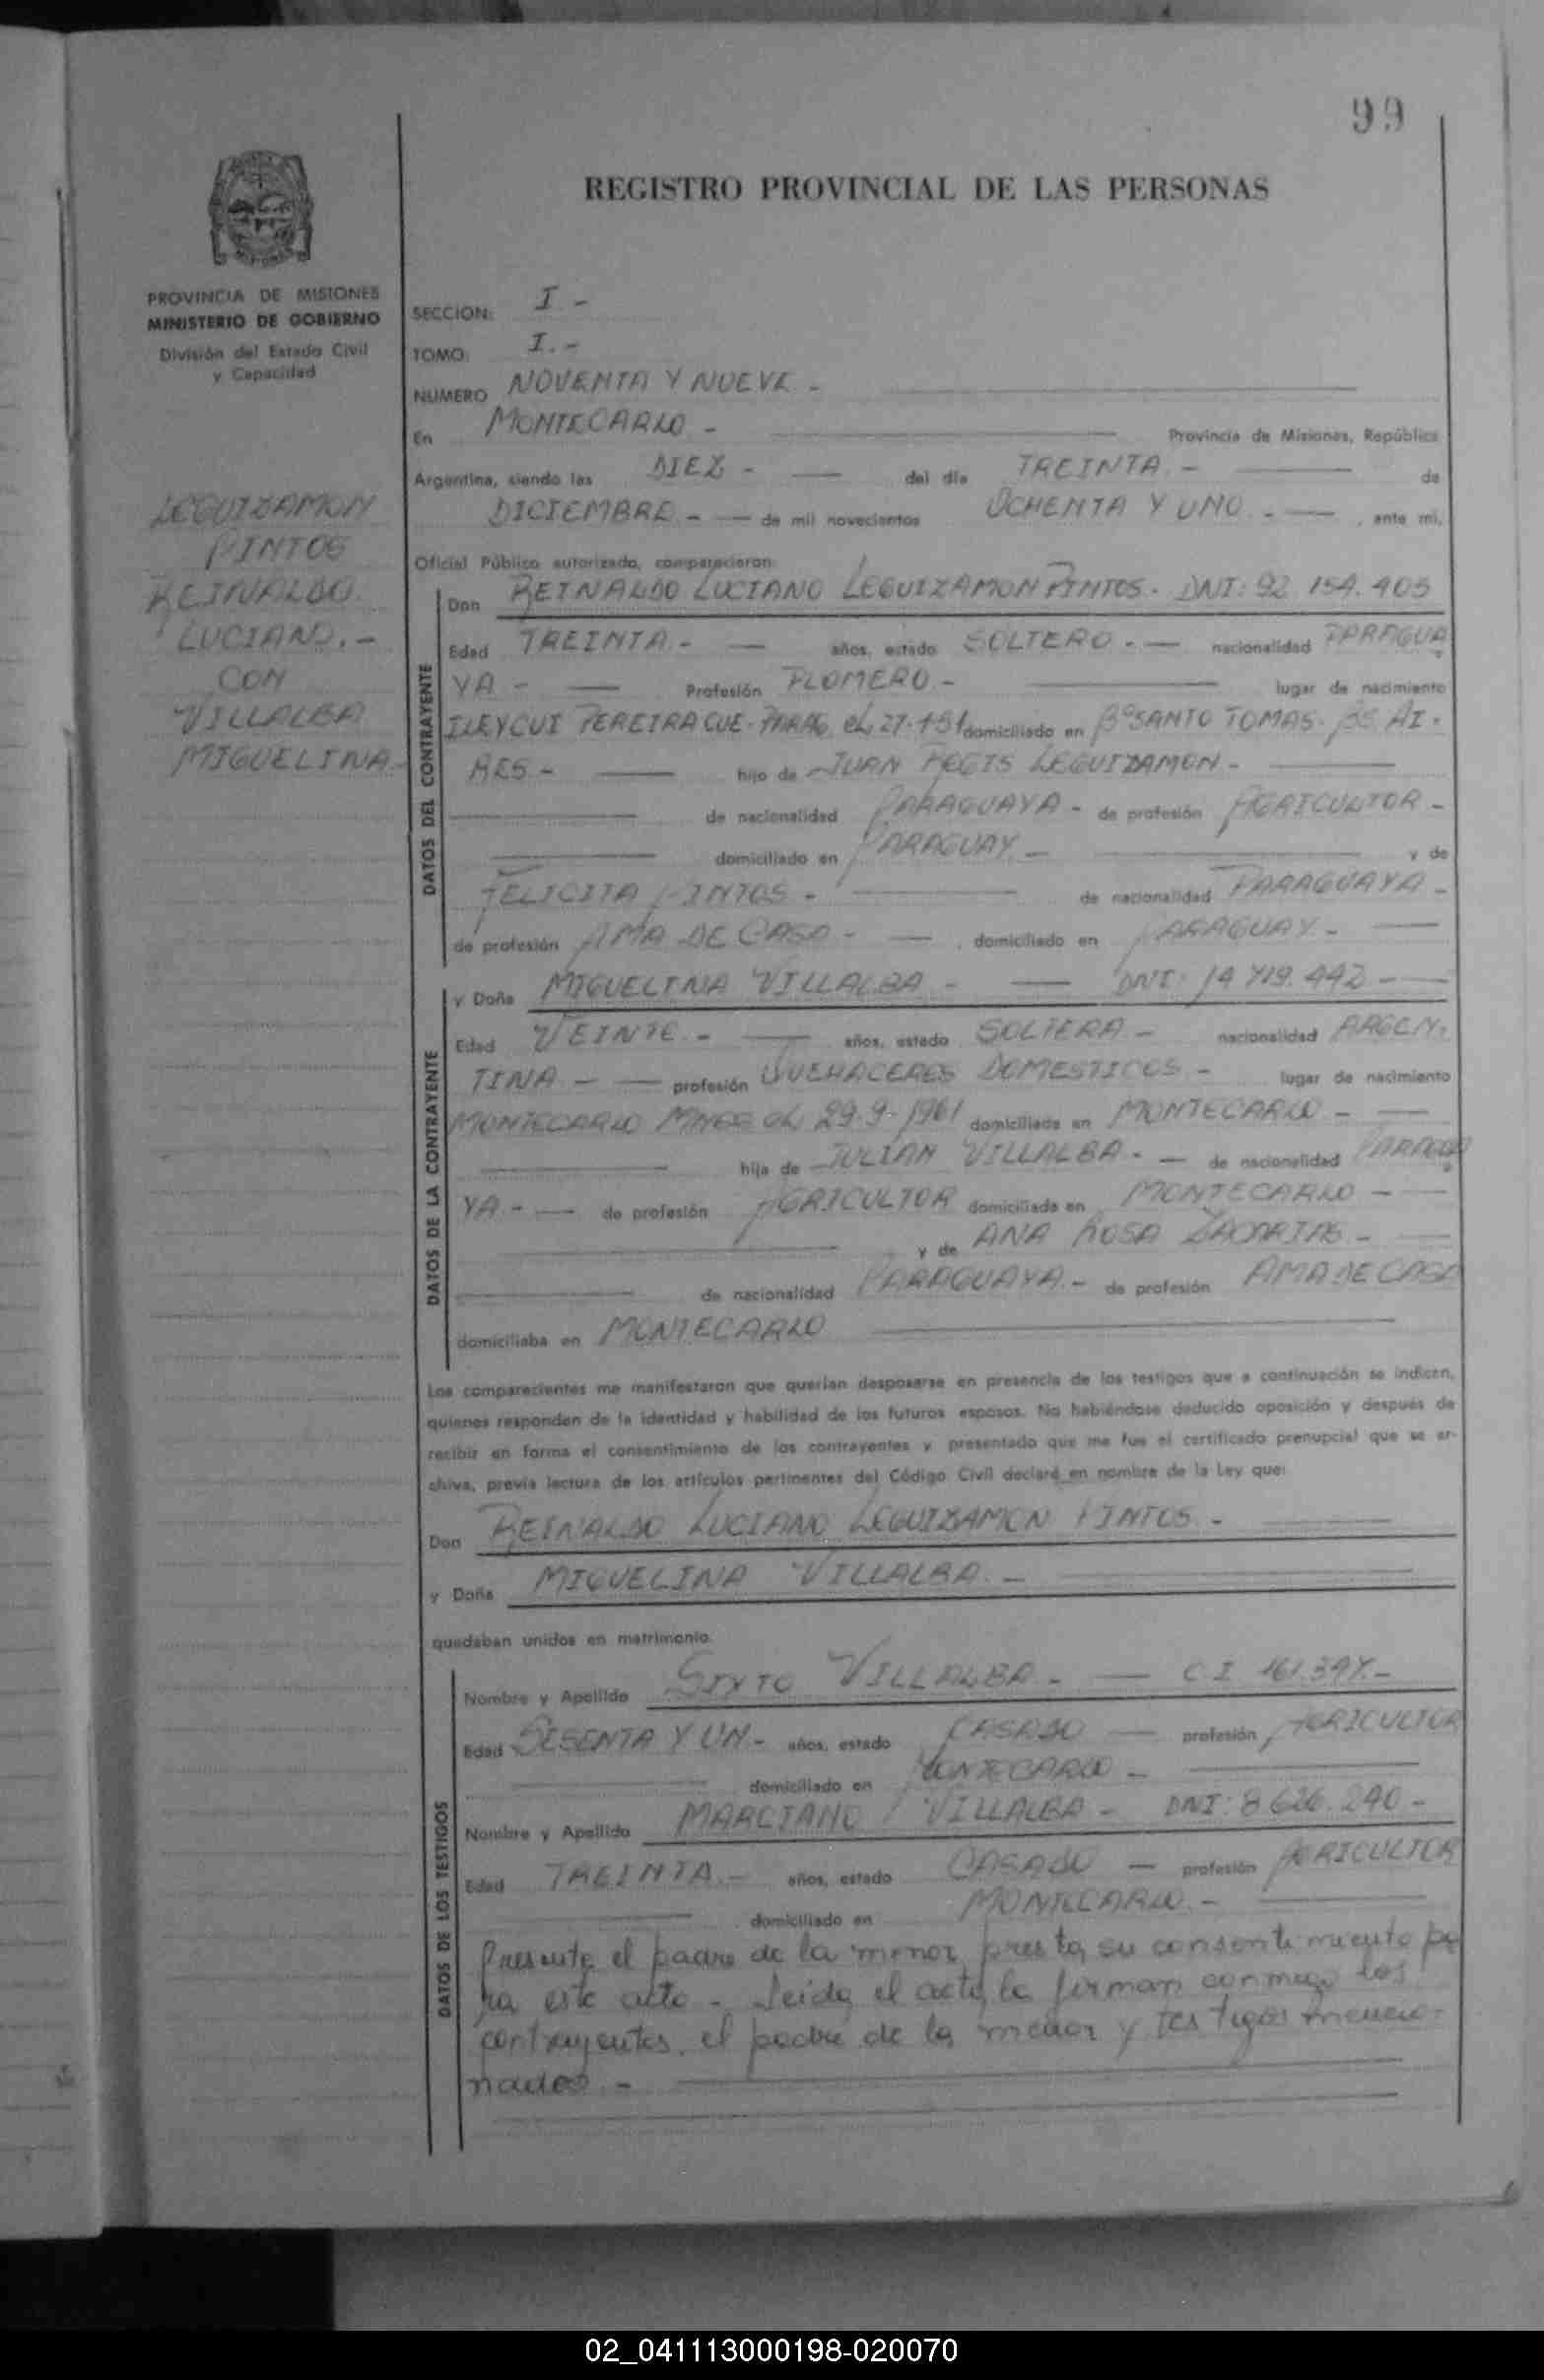 99
REGISTRO PROVINCIAL DE LAS PERSONAS
PROVINCIA DE MISIONES
MINISTERIO DE GOBIERNO
División del Estado Civil
y Capacidad
LEGUIZAMON
PINTOS
REINALDO
LUCIANO.-
CON
VILLALBA
MIGUELINA-
SECCION: I -
TOMO: I.-
NUMERO NOVENTA Y NUEVE -
En MONTECARLO - Provincia de Misiones, República
Argentina, siendo las DIEZ - — del día TREINTA - — de
DICIEMBRE - — de mil novecientos OCHENTA Y UNO - — , ante mi,
Oficial Público autorizado, comparecieron:
DATOS DEL CONTRAYENTE
Don REINALDO LUCIANO LEGUIZAMON PINTOS - DNI: 92 154.405
Edad TREINTA - — años, estado SOLTERO - — nacionalidad PARAGUA
YA - — Profesión PLOMERO - — lugar de nacimiento
PEREIRA CUE - PARAG. el domiciliado en Bº SANTO TOMAS - BS AI-
RES - — hijo de JUAN LEGUIZAMON - —
— de nacionalidad PARAGUAYA - de profesión AGRICULTOR -
— domiciliado en PARAGUAY - — y de
FELICITA PINTOS - — de nacionalidad PARAGUAYA -
de profesión AMA DE CASA - — , domiciliado en PARAGUAY - —
DATOS DE LA CONTRAYENTE
y Doña MIGUELINA VILLALBA - — DNI: 14 719.442 - —
Edad VEINTE - — años, estado SOLTERA - nacionalidad ARGEN-
TINA - — profesión QUEHACERES DOMESTICOS - lugar de nacimiento
MONTECARLO MNES el 29-9-1961 domiciliada en MONTECARLO - —
— hija de JULIAN VILLALBA - — de nacionalidad PARAGUA
YA - — de profesión AGRICULTOR domiciliado en MONTECARLO - —
— y de ANA ROSA ZACARIAS - —
— de nacionalidad PARAGUAYA - de profesión AMA DE CASA
domiciliaba en MONTECARLO —
Los comparecientes me manifestaron que querían desposarse en presencia de los testigos que a continuación se indican,
quienes responden de la identidad y habilidad de los futuros esposos. No habiéndose deducido oposición y después de
recibir en forma el consentimiento de los contrayentes y presentado que me fue el certificado prenupcial que se ar-
chiva, previa lectura de los artículos pertinentes del Código Civil declaré en nombre de la Ley que:
Don REINALDO LUCIANO LEGUIZAMON PINTOS - —
y Doña MIGUELINA VILLALBA. - —
quedaban unidos en matrimonio.
DATOS DE LOS TESTIGOS
Nombre y Apellido SIXTO VILLALBA - — C.I 161.397.-
Edad SESENTA Y UN - años, estado CASADO — profesión AGRICULTOR
— domiciliado en MONTECARLO - —
Nombre y Apellido MARCIANO VILLALBA - DNI: 8 626.240 -
Edad TREINTA - años, estado CASADO — profesión AGRICULTOR
— domiciliado en MONTECARLO - —
Presente el padre de la menor presta su consentimiento pa
ra este acto - Leida el acta, la firman conmigo los
contrayentes, el padre de la menor y testigos mencio-
nados. - —
02_041113000198-020070